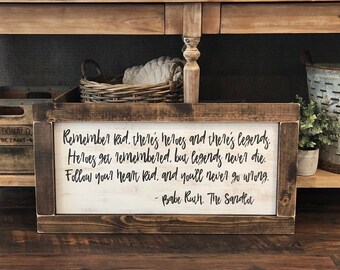 Remember kid, there's heroes and there's legends.
Heroes get remembered, but legends never die.
Follow your heart kid, and you'll never go wrong.
- Babe Ruth, The Sandlot